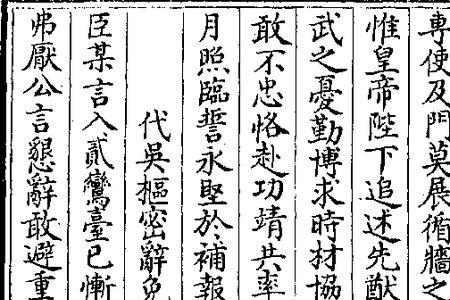 專使及門莫展循牆之
惟皇帝陛下追述先猷
武之憂勤博求時材協
敢不忠恪赴功靖共率
月照臨誓永堅於補報
代吳樞密辭免
臣某言入貳鸞臺已慚
弗厭公言懇辭敢避重